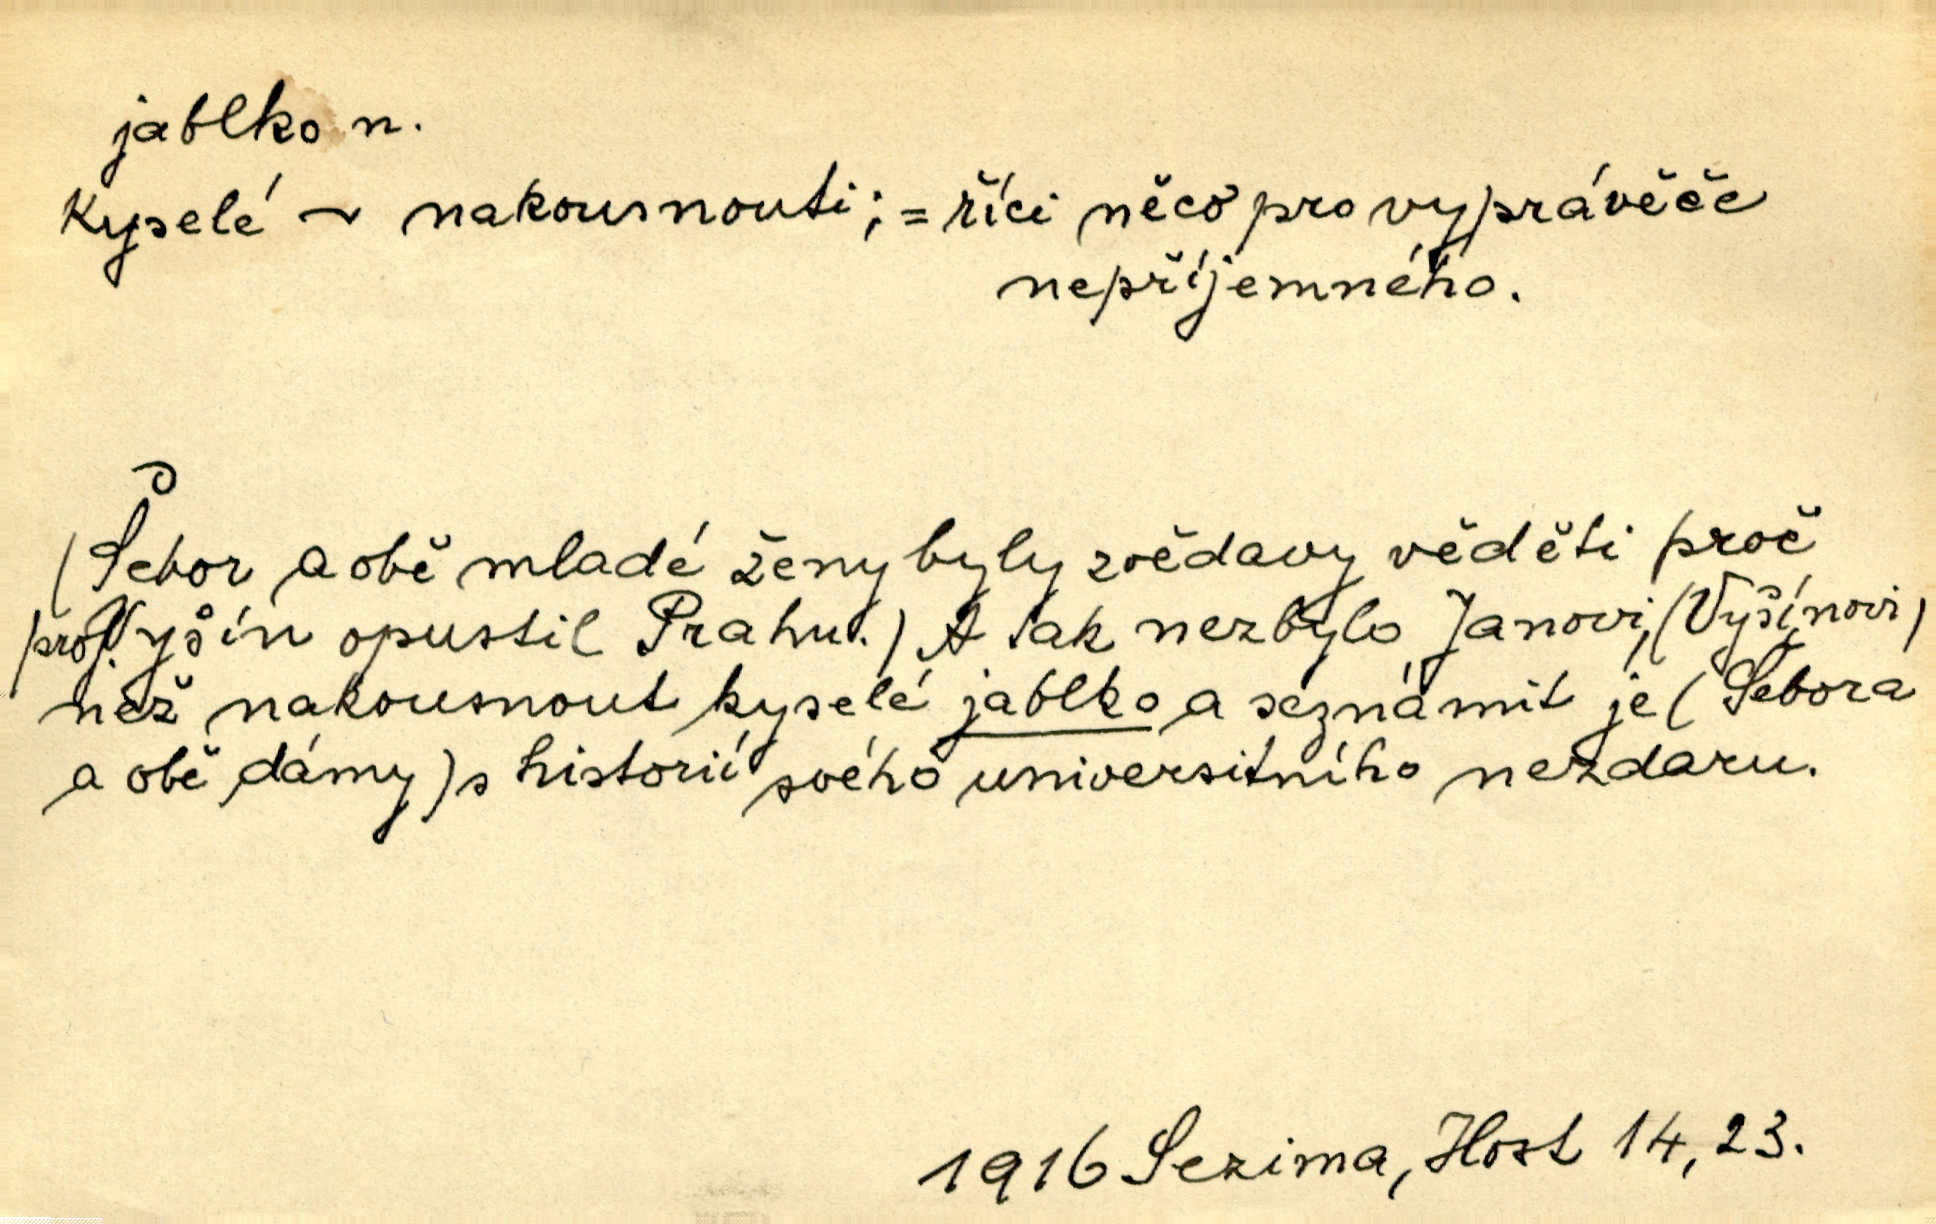 jablko n.
Kyselé ~ nakousnouti; = říci něco pro vyprávěče
nepříjemného.
(Šebor a obě mladé ženy byly zvědavy věděti proč
prof. Vyšín opustil Prahu.) A tak nezbylo Janovi, (Vyšínovi)
než nakousnout kyselé jablko a seznámit je (Šebora
a obě dámy) s historií svého universitního nezdaru.
1916 Sezima, Host 14, 23.